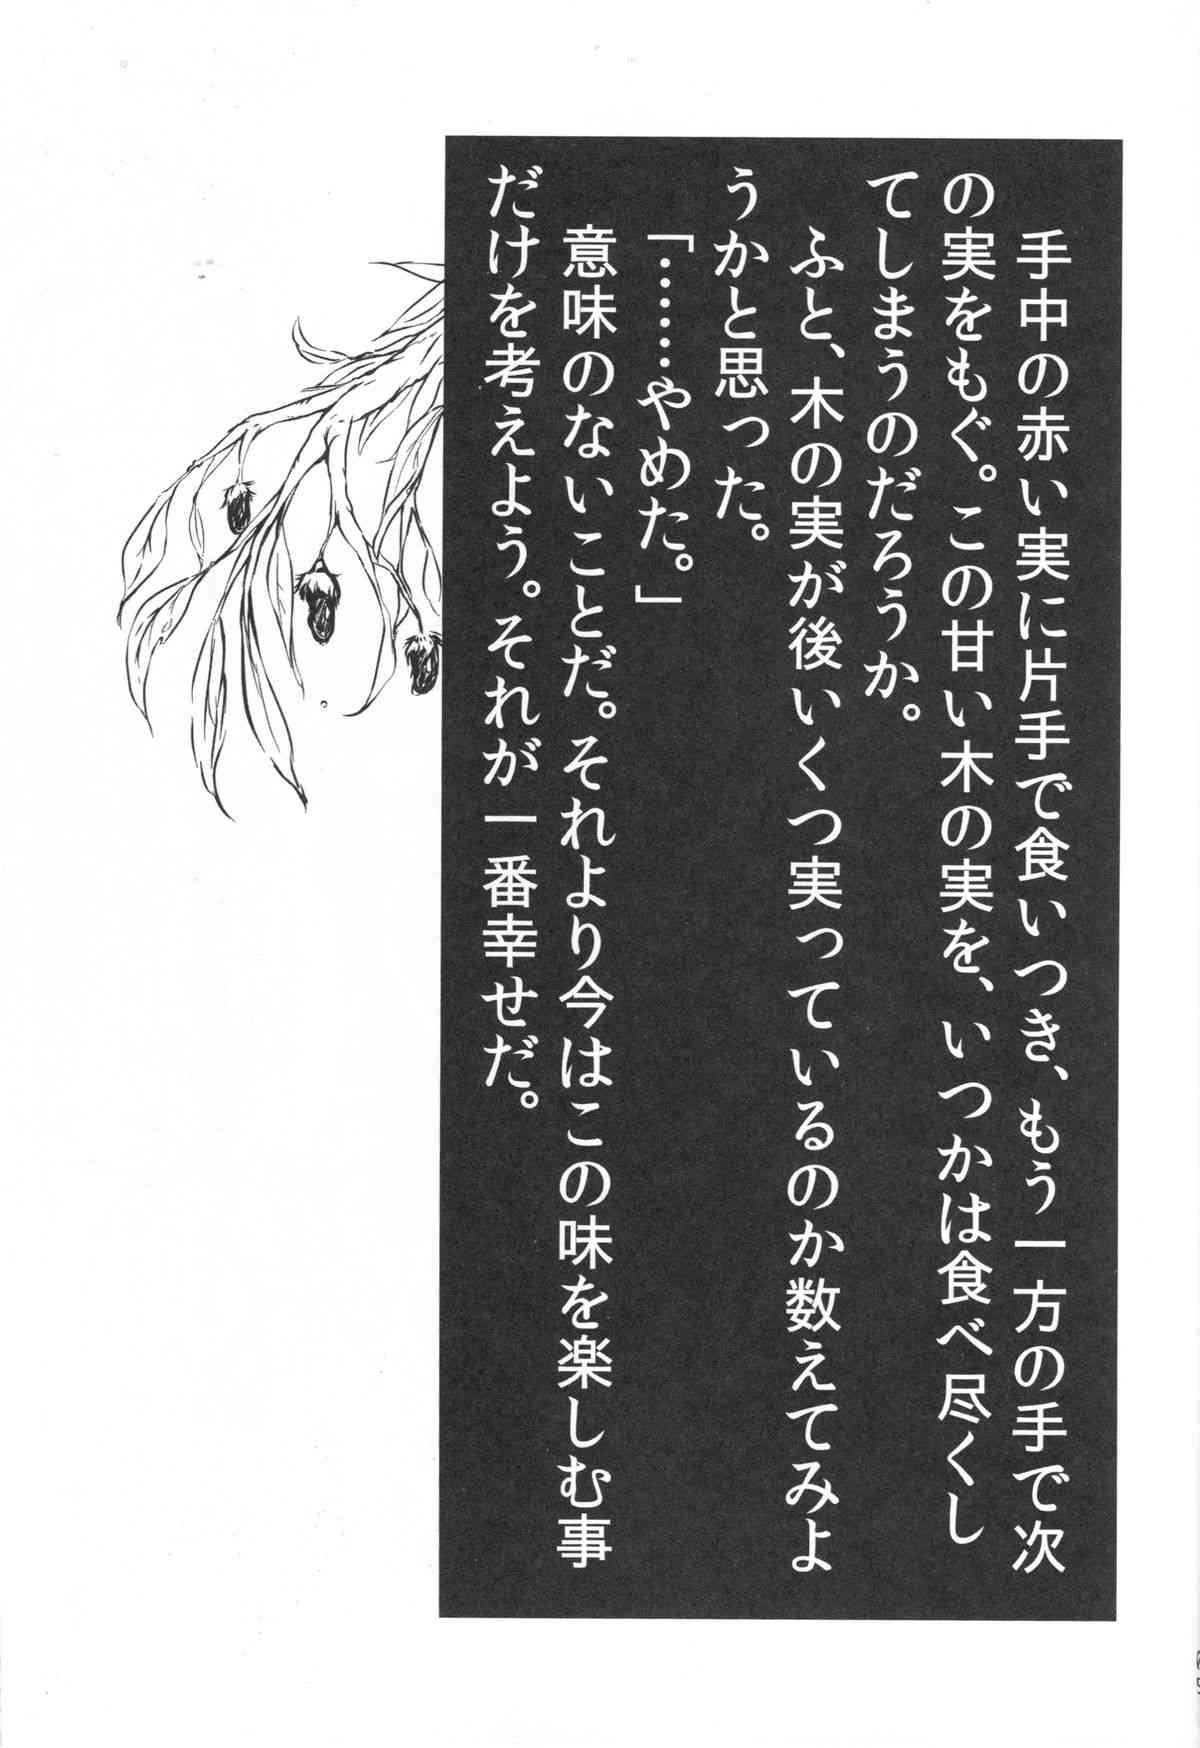 手中の赤い実に片手で食いつき、もう一方の手で次
の実をもぐ。この甘い木の実を、いつかは食べ尽くし
てしまうのだろうか。
　ふと、木の実が後いくつ実っているのか数えてみよ
うかと思った。
「………やめた。」
　意味のないことだ。それより今はこの味を楽しむ事
だけを考えよう。それが一番幸せだ。